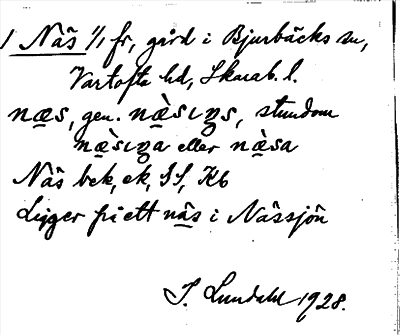 1 Näs 1/1 fr, gård i Bjurbäcks sn,
Vartofta hd, Skarab. l.
næs, gen. næ̀sıŋs, stundom
næ̀sıŋa eller næ̀sa
Näs bek, ek, SS, Kb
Ligger på ett näs i Nässjön
I. Lundahl 1928.